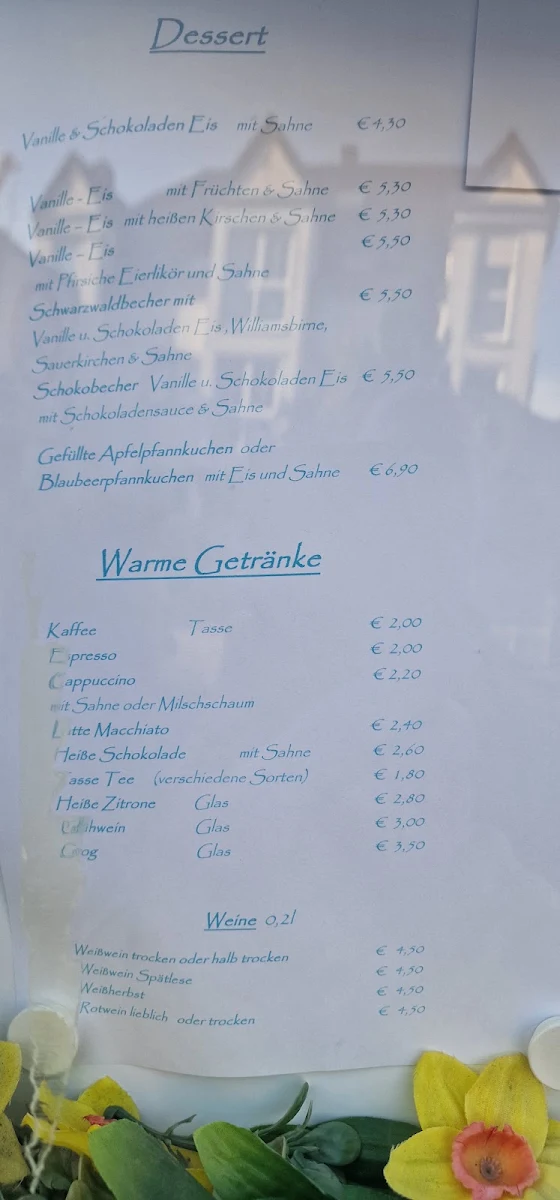 Dessert
Vanille & Schokoladen Eis mit Sahne € 4,30
Vanille - Eis mit Früchten & Sahne € 5,30
Vanille - Eis mit heißen Kirschen & Sahne € 5,30
Vanille - Eis € 5,50
mit Pfirsiche Eierlikör und Sahne
Schwarzwaldbecher mit € 5,50
Vanille u. Schokoladen Eis, Williamsbirne,
Sauerkirchen & Sahne
Schokobecher Vanille u. Schokoladen Eis € 5,50
mit Schokoladensauce & Sahne
Gefüllte Apfelpfannkuchen oder
Blaubeerpfannkuchen mit Eis und Sahne € 6,90
Warme Getränke
Kaffee Tasse € 2,00
Espresso € 2,00
Cappuccino € 2,20
mit Sahne oder Milschschaum
Latte Macchiato € 2,40
Heiße Schokolade mit Sahne € 2,60
Tasse Tee (verschiedene Sorten) € 1,80
Heiße Zitrone Glas € 2,80
Glühwein Glas € 3,00
Grog Glas € 3,50
Weine 0,2l
Weißwein trocken oder halb trocken € 4,50
Weißwein Spätlese € 4,50
Weißherbst € 4,50
Rotwein lieblich oder trocken € 4,50